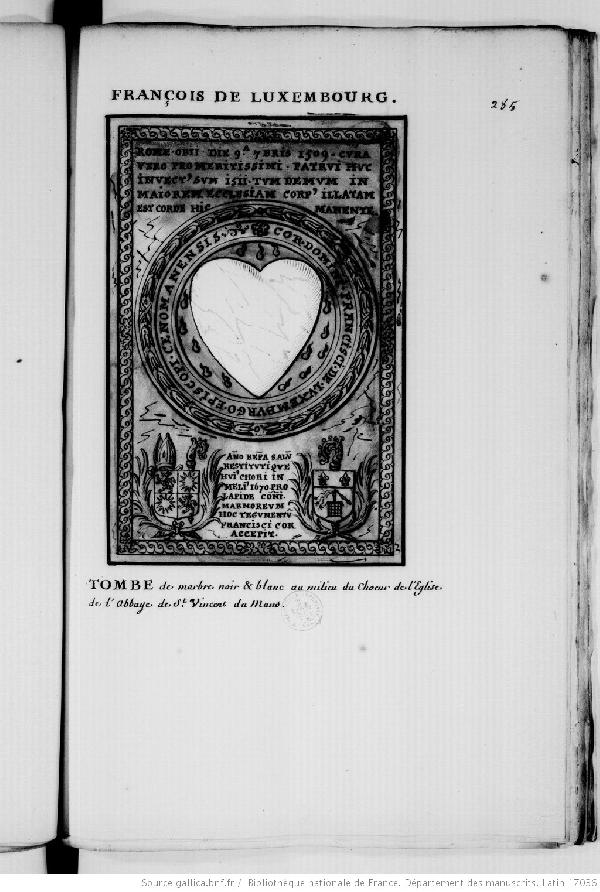 FRANÇOIS DE LUXEMBOURG.
285
ROMÆ·OBII·DIE 9ᴬ 7BRIS 1509·CVRA
VERO PROMERITISSIMI·PATRVI HVC
INVECTꝰ SVM 1511·TVM DEMVM IN
MAIOREM ECCLESIAM CORPꝰ ILLATAM
EST CORDE HIC MANENTE
COR·DOMINI FRANCISCI·DE·LVXEMBVRGO·EPISCOPI·CENOMANENSIS
AÑO REPA SALV
RESTITVTIQVE
HVIꝰ CHORI IN
MELIꝰ 1670 PRO
LAPIDE COÑI
MARMOREVM
HOC TEGVMENTV
FRANCISCI COR
ACCEPIT.
TOMBE de marbre noir & blanc au milieu du Choeur de l'Eglise
de l'Abbaye de St. Vincent du Mans.
Source gallica.bnf.fr / Bibliothèque nationale de France. Département des manuscrits. Latin 17036